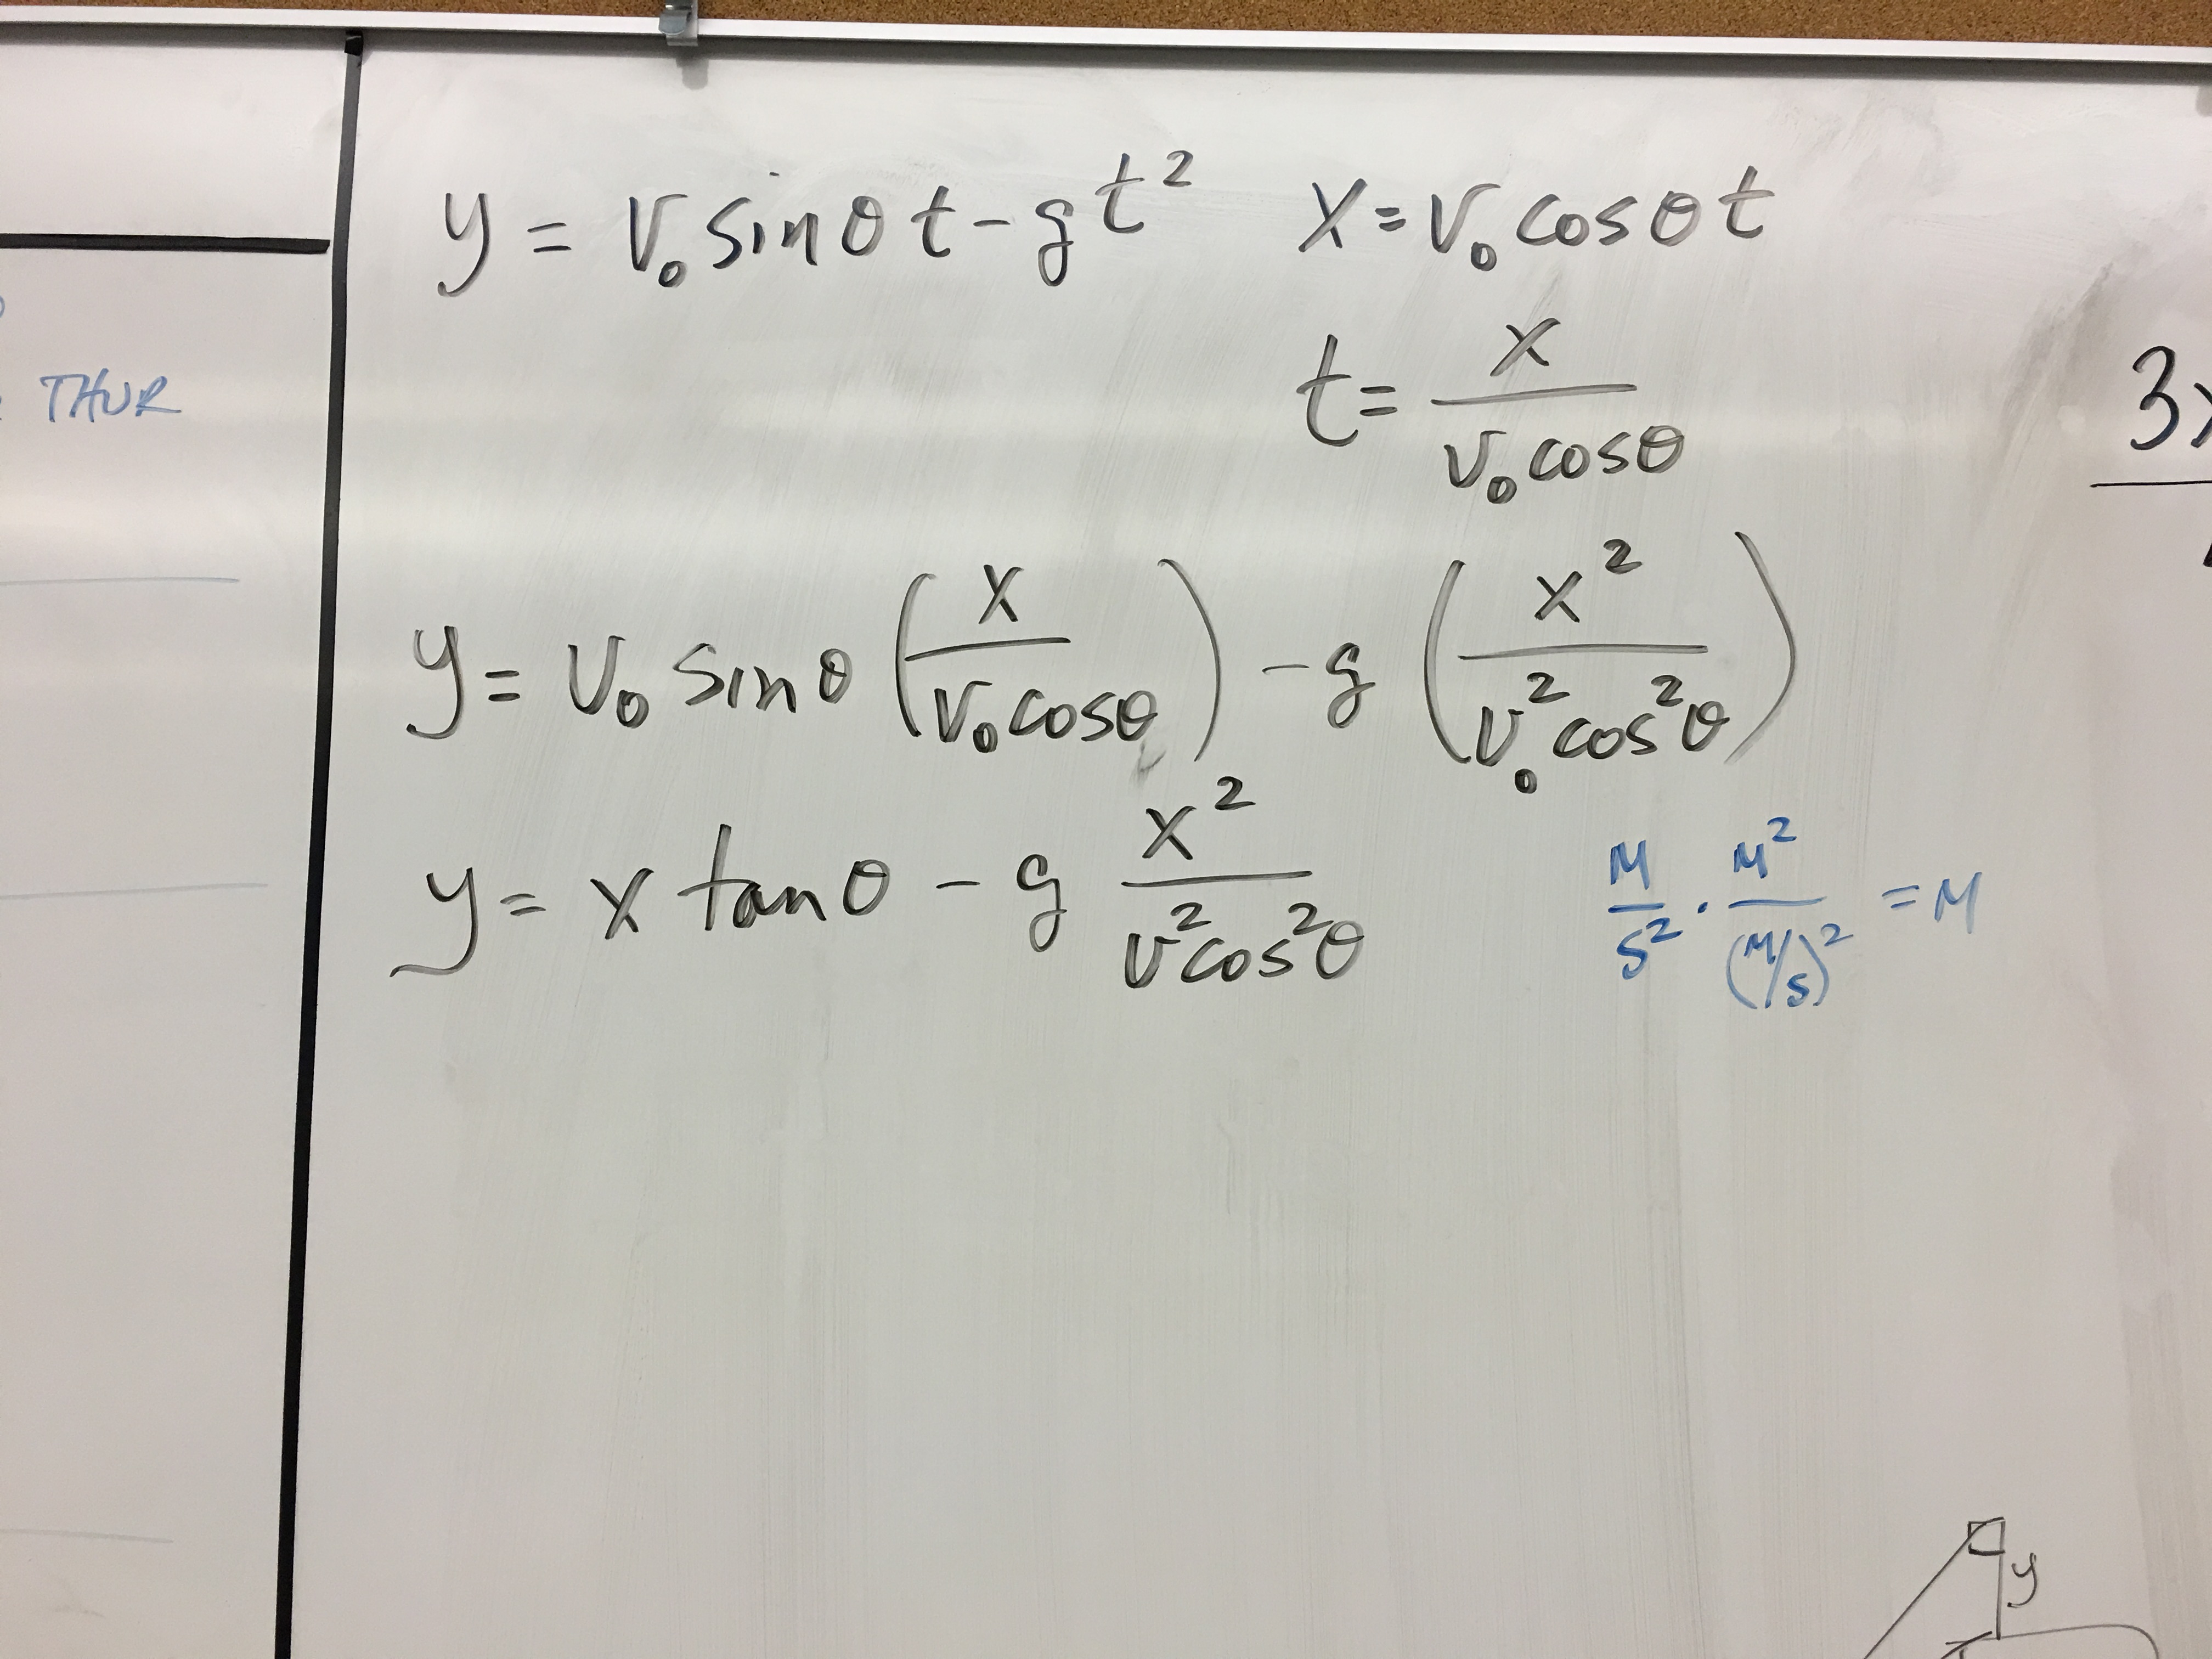 y = v₀ sinθ t - gt² x = v₀ cosθ t
THUR
t = x / (v₀ cosθ)
3x
y = v₀ sinθ (x / (v₀ cosθ)) - g (x² / (v₀² cos²θ))
y = x tanθ - g x² / (v² cos²θ)
M/S² · M²/(M/S)² = M
y